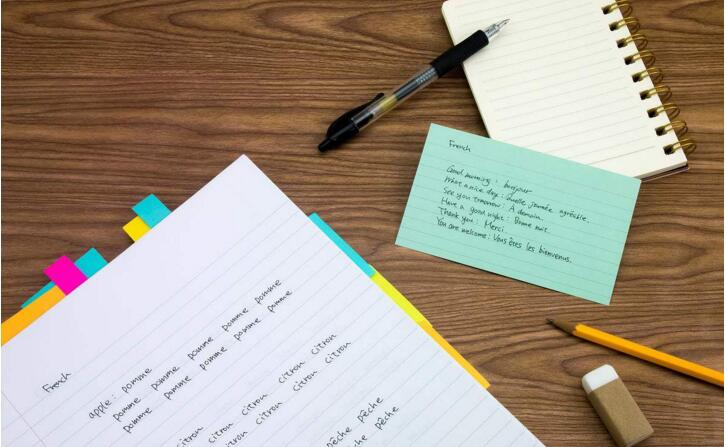 French
Good morning : bonjour
What a nice day : Quelle journée agréable.
See you tomorrow : À demain.
Have a good night : Bonne nuit.
Thank you : Merci
You are welcome : Vous êtes les bienvenus.
French
apple : pomme pomme pomme pomme pomme pomme
pomme pomme pomme pomme pomme
citron citron citron citron
citron citron citron
pêche pêche
pêche